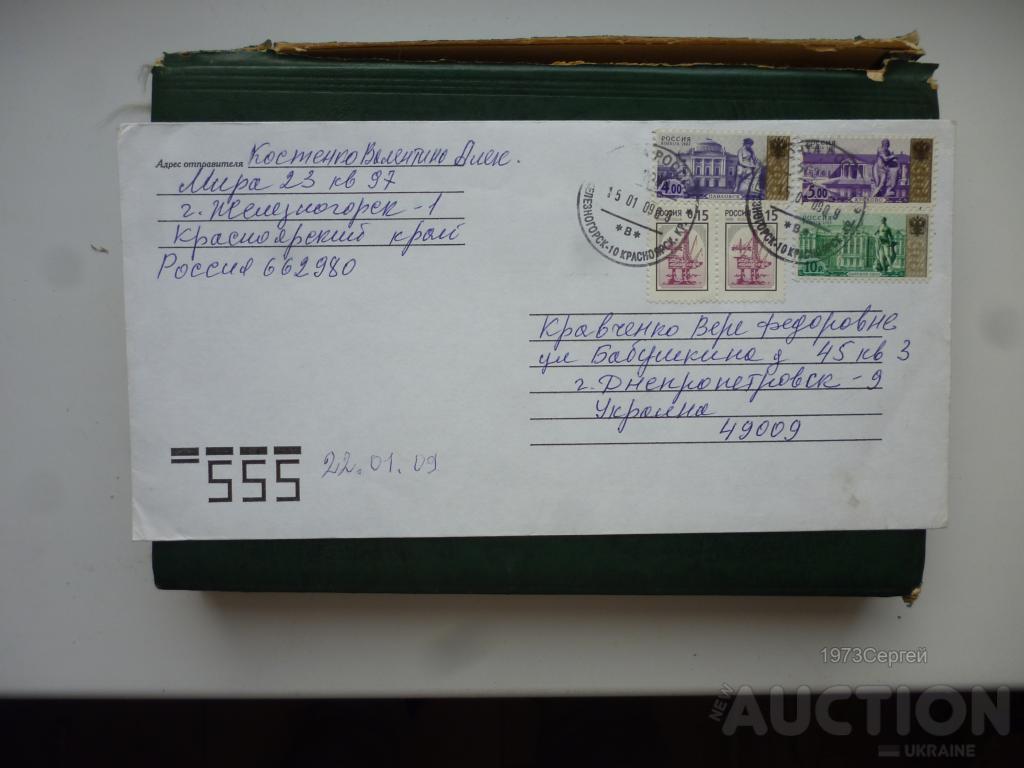 Адрес отправителя Костенко Валентина Алек.
Мира 23 кв 97
г. Железногорск-1
Красноярский край
Россия 662980
РОССИЯ
4.00
ПАВЛОВСК
РОССИЯ
5.00
РОССИЯ 0,15
РОССИЯ 15
РОССИЯ
10 р.
15 01 09
*В*
ЖЕЛЕЗНОГОРСК-10 КРАСНОЯРСК. КР.
01 09
*В*
Кравченко Вере Федоровне
ул Бабушкина д 45 кв 3
г. Днепропетровск-9
Украина
49009
555
22.01.09
1973Сергей
NEW AUCTION
UKRAINE